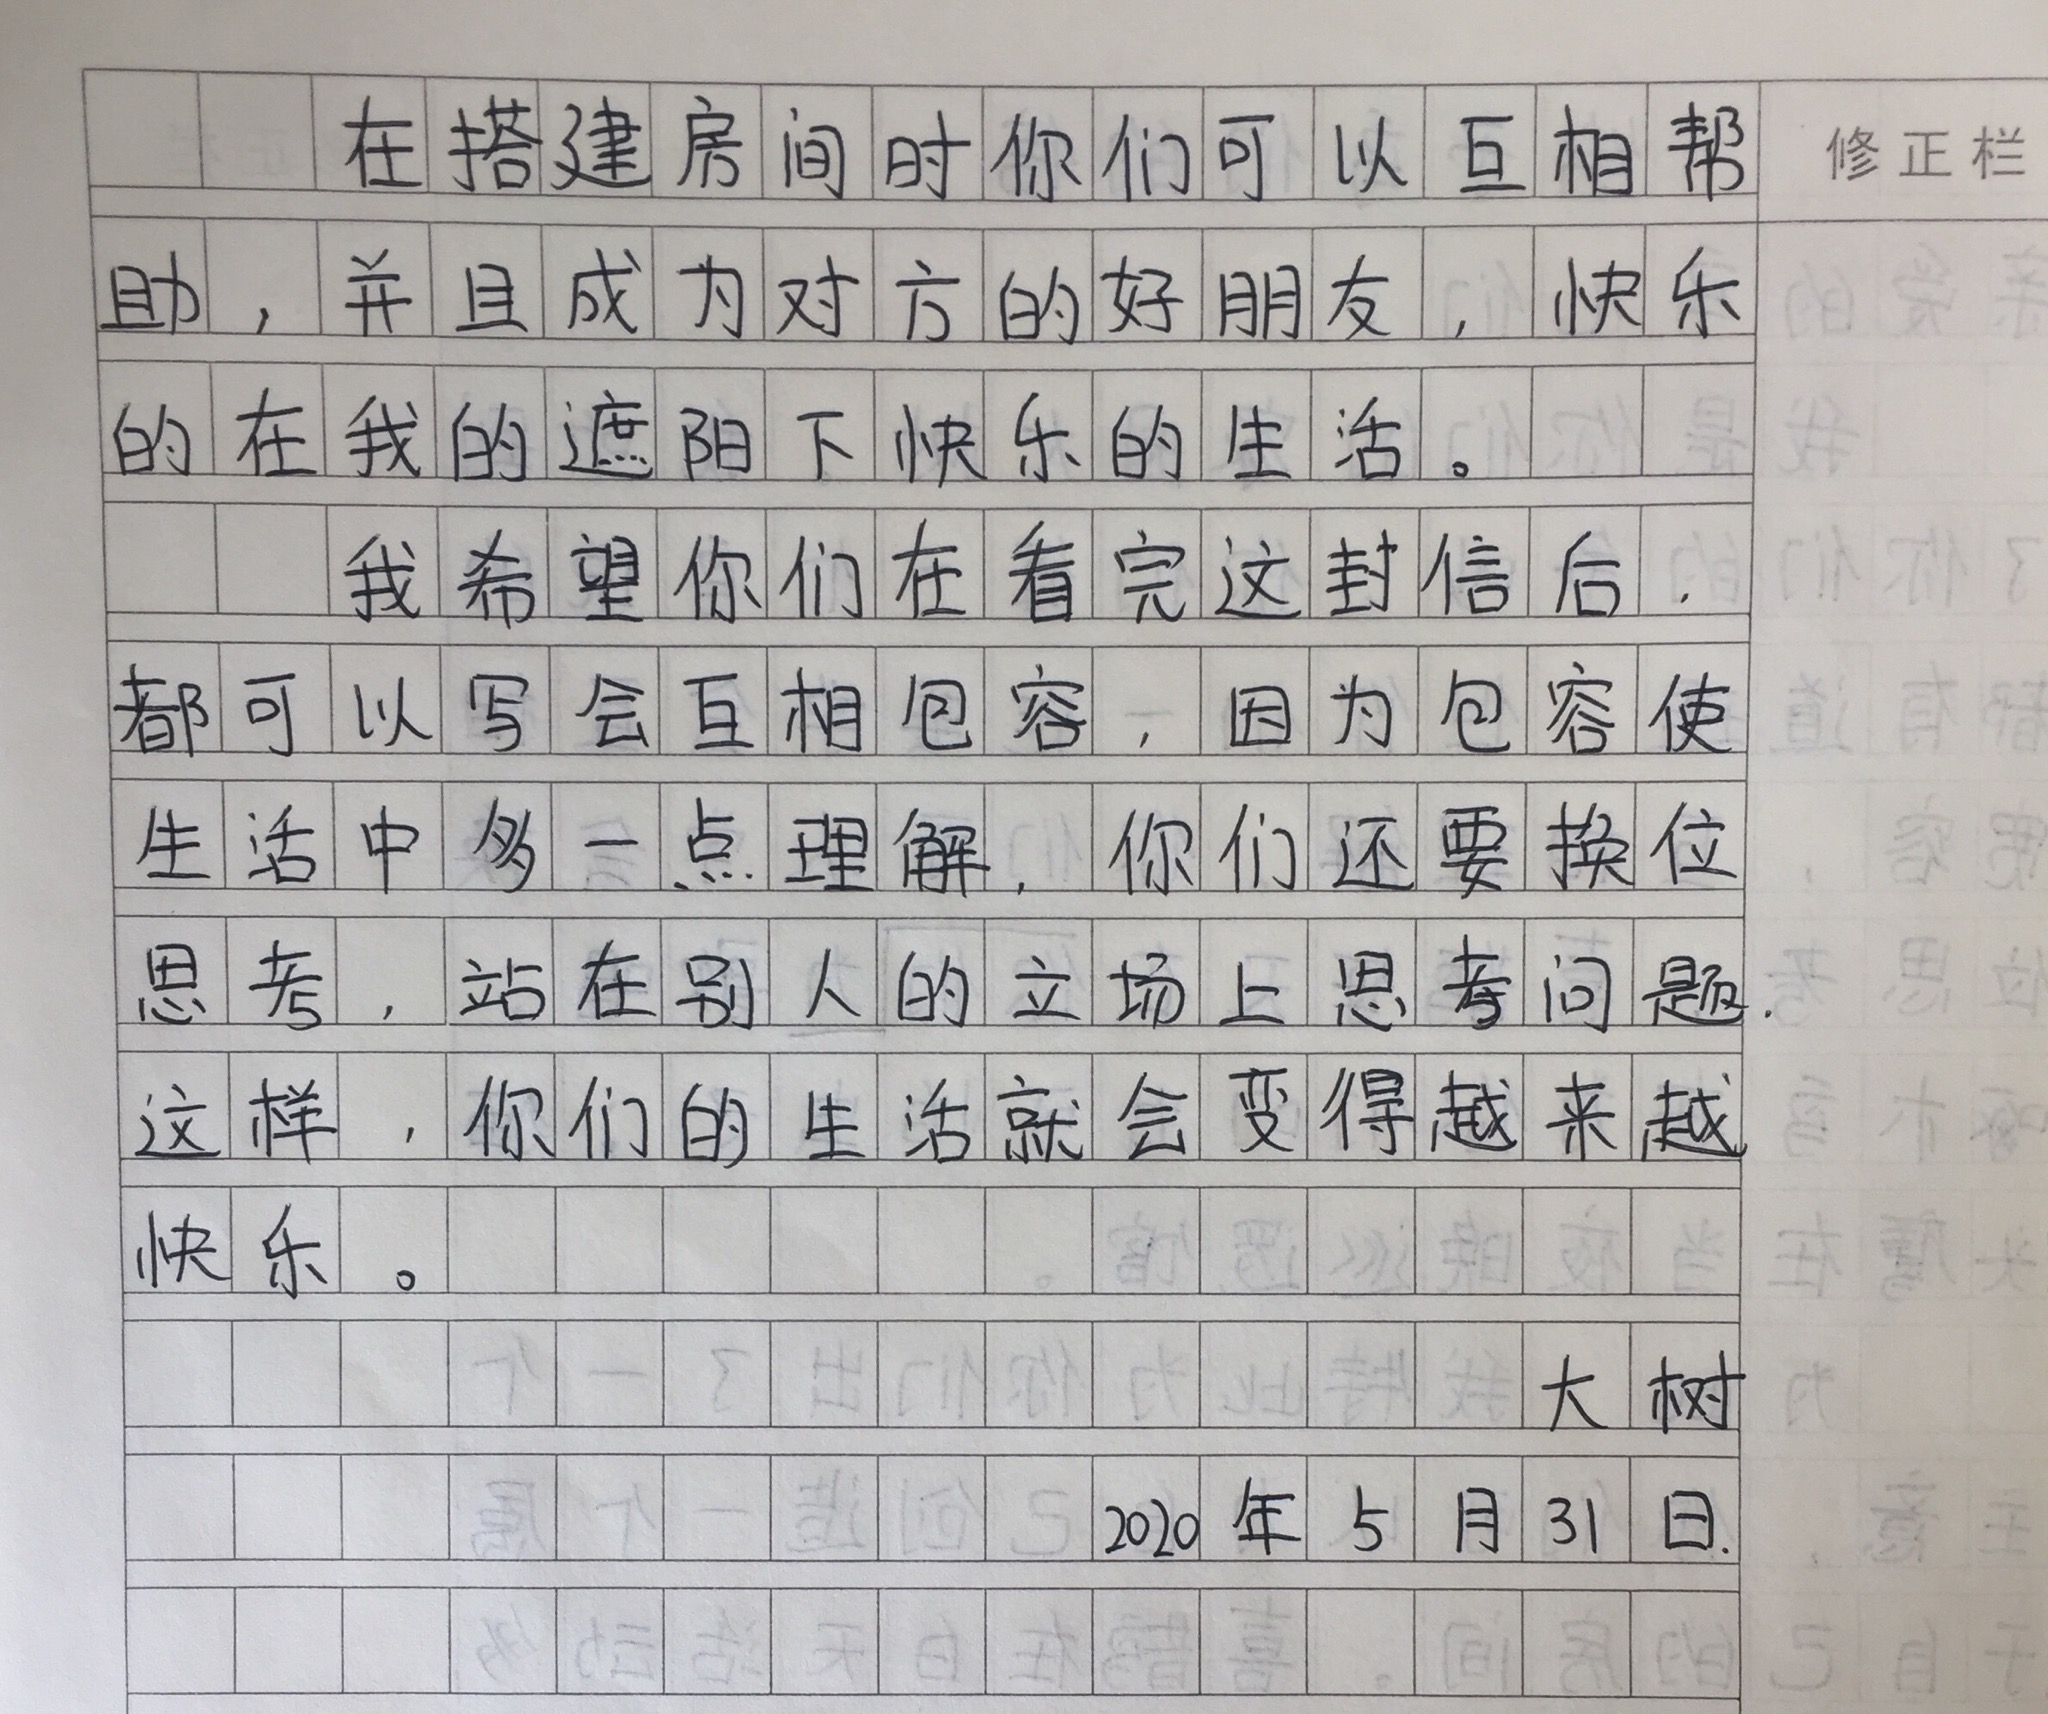 在搭建房间时你们可以互相帮
修正栏
助，并且成为对方的好朋友，快乐
的在我的遮阳下快乐的生活。
我希望你们在看完这封信后，
都可以写会互相包容，因为包容使
生活中多一点理解，你们还要换位
思考，站在别人的立场上思考问题，
这样，你们的生活就会变得越来越
快乐。
大树
2020年5月31日.